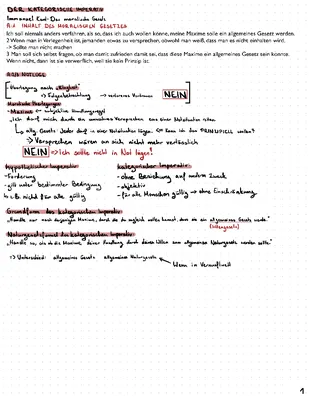 DER KATEGORISCHE IMPERATIV
Immanuel Kant - Das moralische Gesetz
A.1 INHALT DES MORALISCHEN GESETZES
Ich soll niemals anders verfahren, als so, dass ich auch wollen könne, meine Maxime solle ein allgemeines Gesetz werden.
2 Wenn man in Verlegenheit ist, jemanden etwas zu versprechen, obwohl man weiß, dass man es nicht einhalten wird.
-> Sollte man nicht machen
3 Man soll sich selbst fragen, ob man damit zufrieden damit sei, dass diese Maxime ein allgemeines Gesetz sein könne.
Wenn nicht, dann ist sie verwerflich, weil sie kein Prinzip ist.
A2: NOTLÜGE
Überlegung nach Klugheit
-> Folgenbetrachtung -> verlorenes Vertrauen NEIN
Moralische Überlegung
- Maxime = subjektive Handlungsregel
"Ich darf mich durch ein unwahres Versprechen aus einer Notsituation retten
-> allg. Gesetz: Jeder darf in einer Notsituation lügen. Kann ich das PRINZIPIELL wollen?
-> Versprechen wären an sich nicht mehr verlässlich
NEIN => Ich sollte nicht in Not lügen!
hypothetischer Imperativ kategorischer Imperativ
- Forderung - ohne Beziehung auf andern Zweck
- gilt unter bestimmter Bedingung - objektiv
z.B. nicht für alle gültig - für alle Menschen gültig -> ohne Einschränkung
Grundform des kategorischen Imperativ
"Handle nur nach derjenigen Maxime, durch die du zugleich wollen kannst, dass sie ein allgemeines Gesetz werde."
(Sittengesetz)
Naturgesetzformel des kategorischen Imperativ
"Handle so, als ob die Maxime deiner Handlung durch deinen Willen zum allgemeinen Naturgesetze werden sollte."
=> Unterschied: allgemeines Gesetz allgemeines Naturgesetz
1